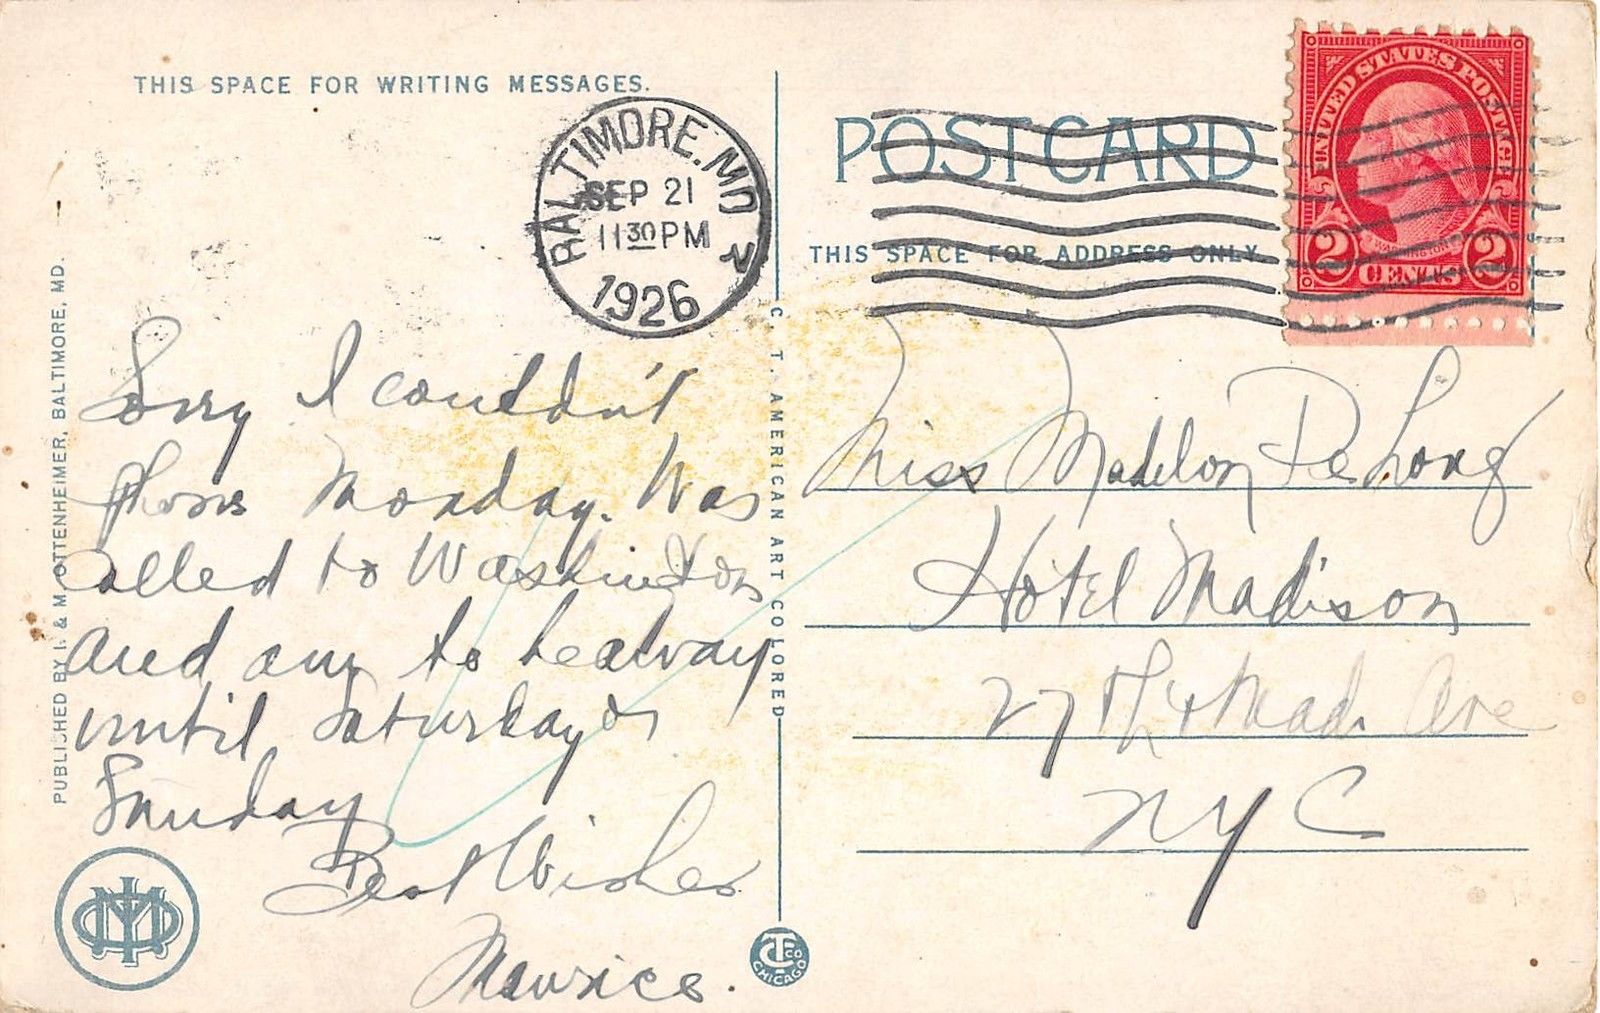 THIS SPACE FOR WRITING MESSAGES.
BALTIMORE, MD
SEP 21
11 30 PM
1926
2
POSTCARD
THIS SPACE FOR ADDRESS ONLY.
UNITED STATES POSTAGE
WASHINGTON
2 CENTS 2
PUBLISHED BY I. & M. OTTENHEIMER, BALTIMORE, MD.
C. T. AMERICAN ART COLORED
Sorry I couldn't
phone Monday. Was
called to Washington
and am to be away
until Saturday or
Sunday
Best Wishes
Maurice.
Miss Madelon De Long
Hotel Madison
27th & Madi Ave
NYC
CT CO
CHICAGO